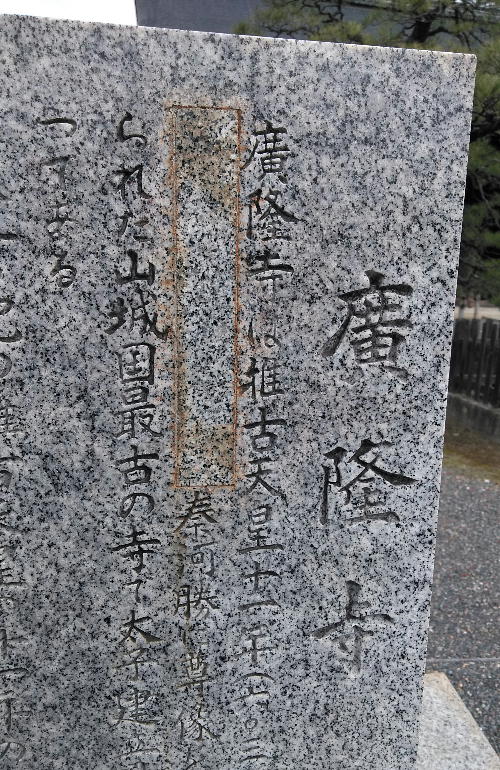 廣隆寺
廣隆寺は推古天皇十一年(六〇三
秦河勝に尊像を
られた山城国最古の寺で太子建立
つてある